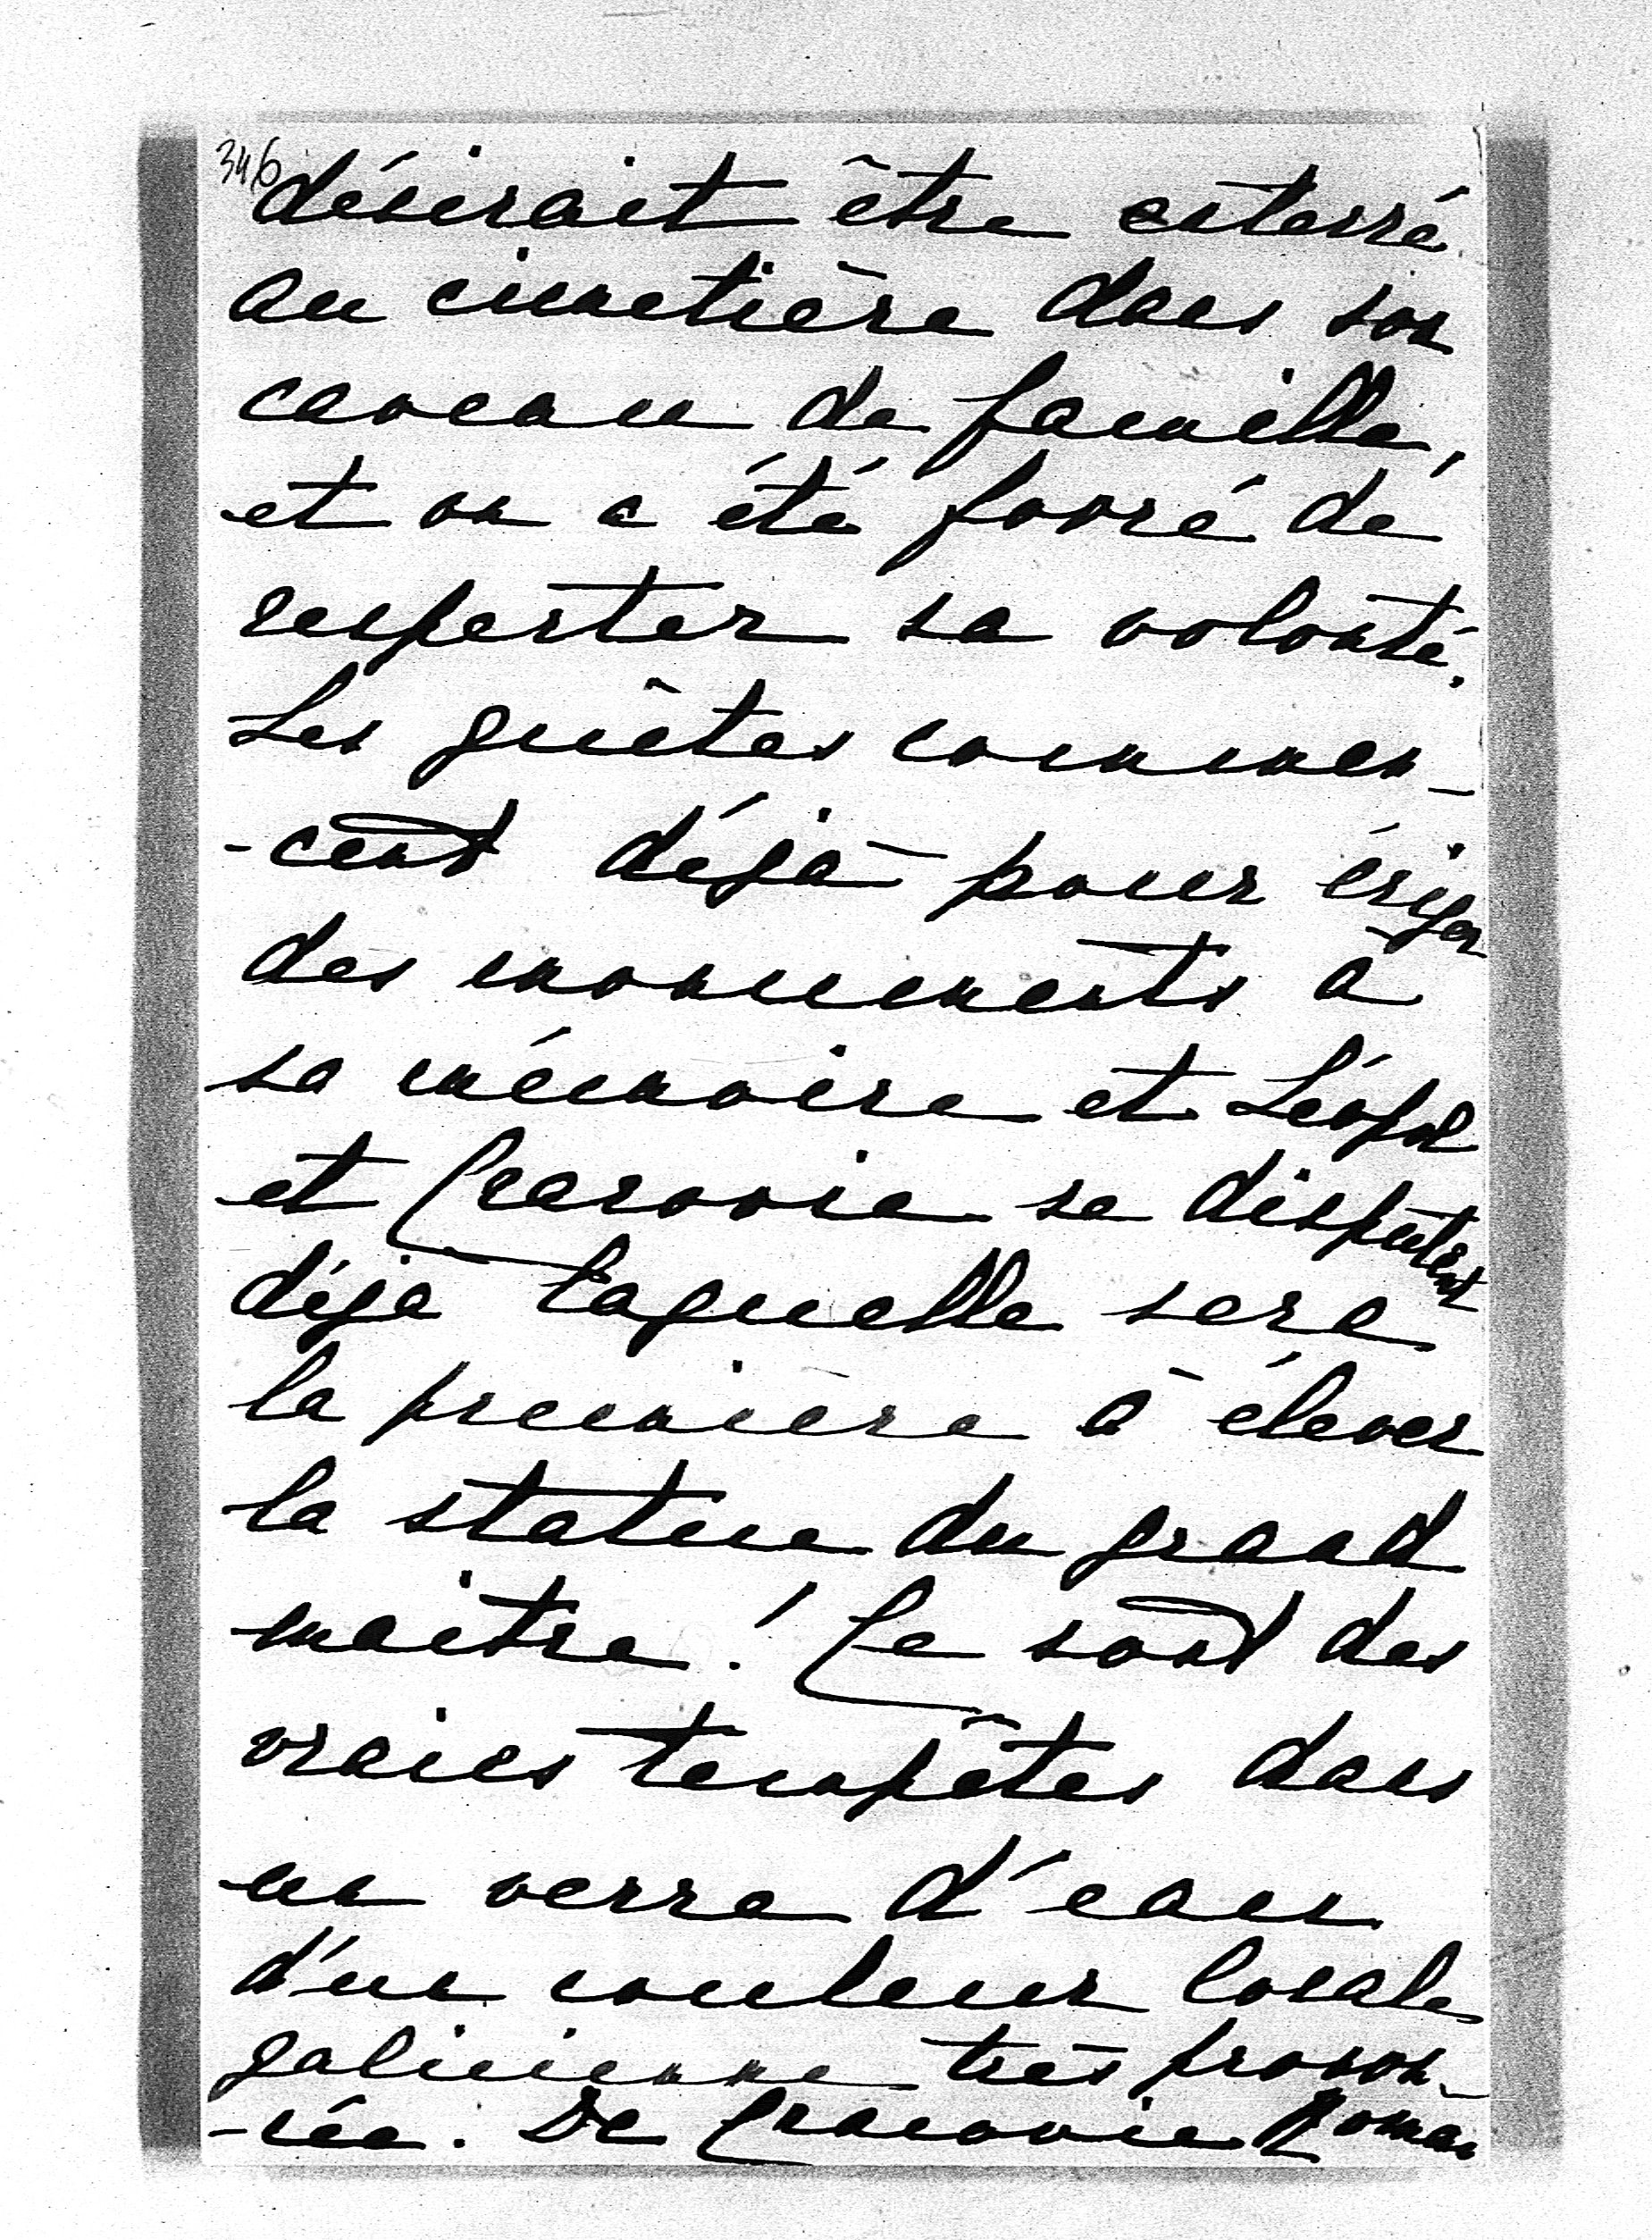 346
désirait être enterré
au cimetière dans son
caveau de famille,
et on a été forcé de
respecter sa volonté.
Les quêtes commen-
-cent déjà pour ériger
des monuments à
sa mémoire et Léopol
et Cracovie se disputent
déja laquelle sera
la première à élever
la statue du grand
maitre! Ce sont des
vraies tempêtes dans
un verre d'eau
d'un couleur locale
galicienne très pronon-
-cée. De Cracovie Roman